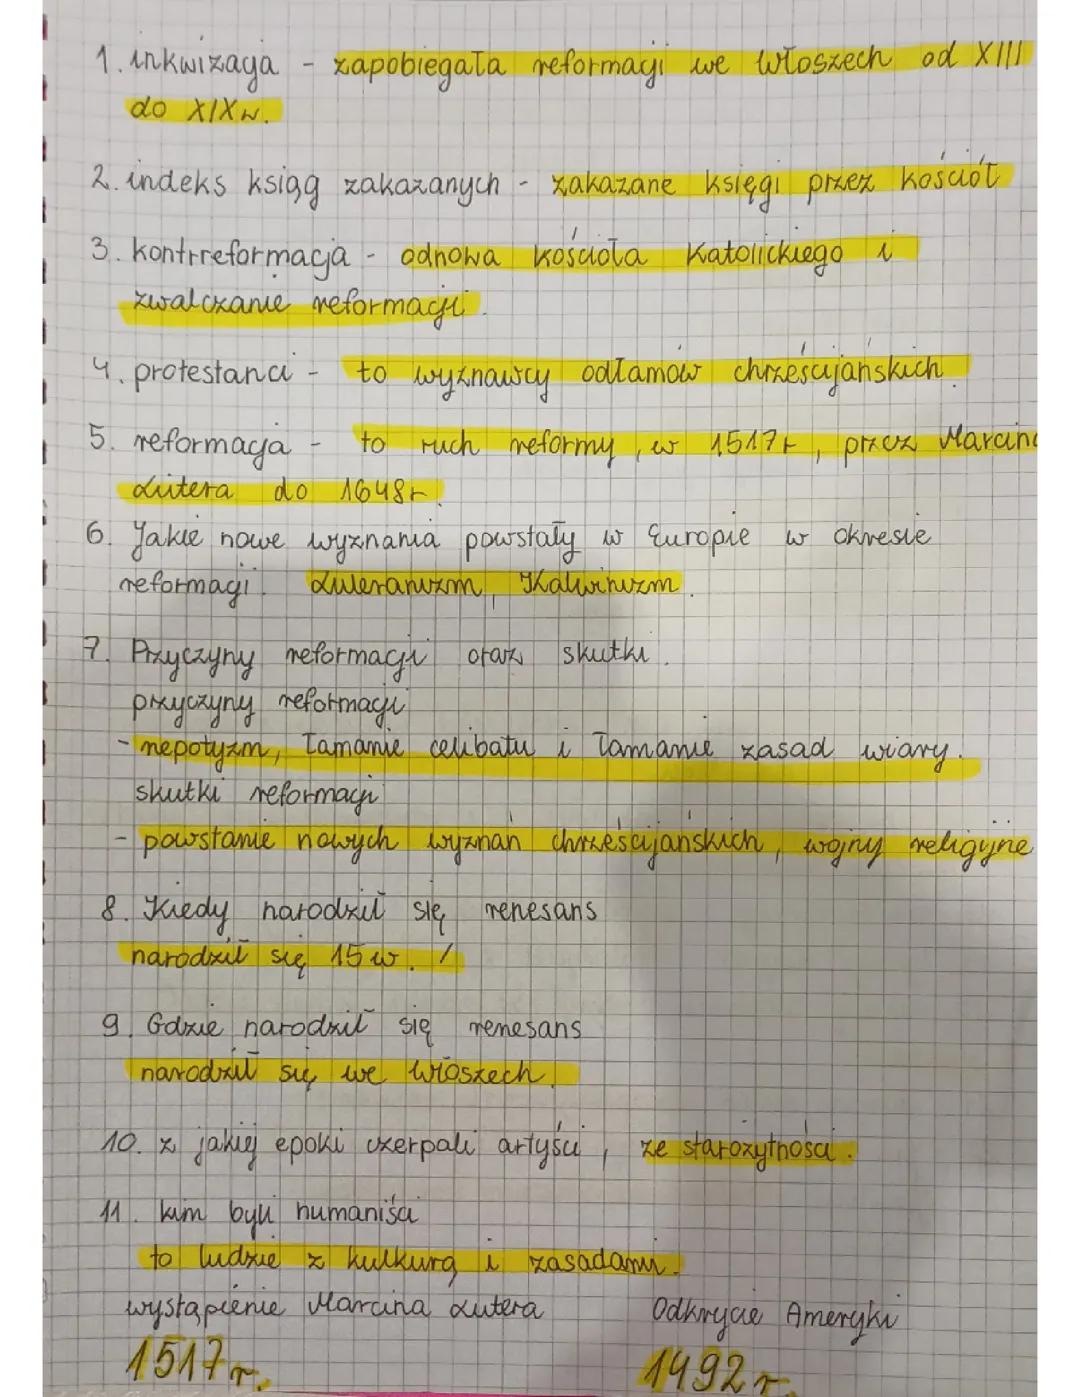 1. inkwizacja - zapobiegała reformacji we włoszech od XIII
do XIX w.
2. indeks ksiąg zakazanych - zakazane księgi przez kościół
3. kontrreformacja - odnowa kościoła Katolickiego i
zwalczanie reformacji.
4. protestanci - to wyznawcy odłamów chrześcijańskich.
5. reformacja - to ruch reformy, w 1517r, przez Marcina
Lutera do 1648r.
6. Jakie nowe wyznania powstały w Europie w okresie
reformacji. Luteranizm, Kalwinizm.
7. Przyczyny reformacji oraz skutki.
przyczyny reformacji
- nepotyzm, łamanie celibatu i łamanie zasad wiary.
skutki reformacji
- powstanie nowych wyznań chrześcijańskich, wojny religijne
8. Kiedy narodził się renesans
narodził się 15 w. /
9. Gdzie narodził się renesans
narodził się we włoszech.
10. z jakiej epoki czerpali artyści, ze starożytności.
11. kim byli humaniści
to ludzie z kulkurą i zasadami.
wystąpienie Marcina Lutera Odkrycie Ameryki
1517r. 1492r.